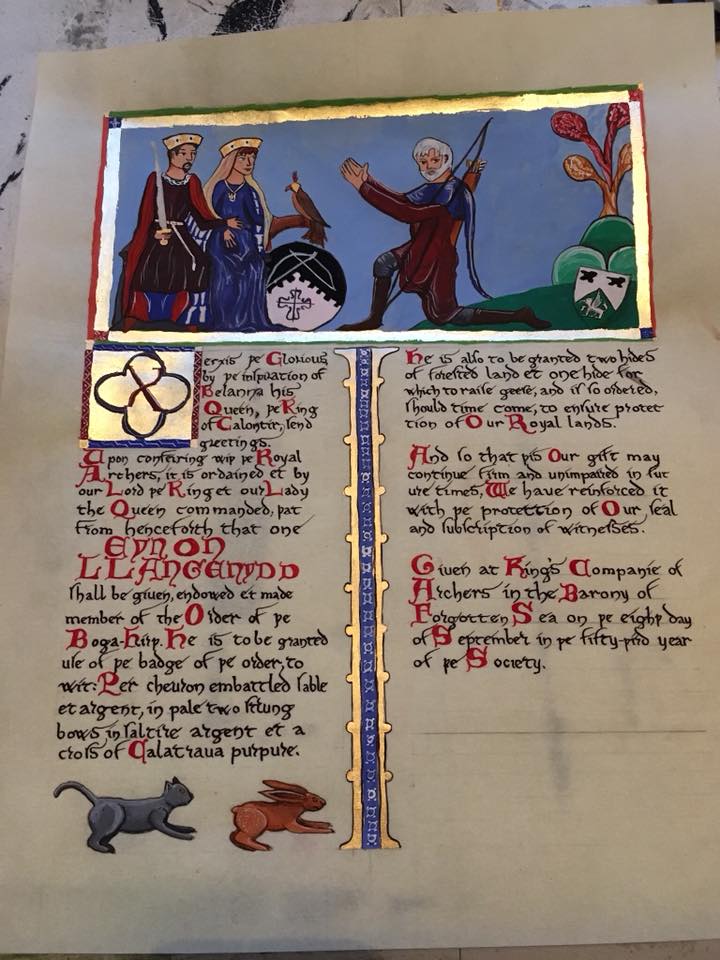 Xerxis þe Glorious
by þe inspiration of
Belanna his
Queen, þe King
of Calontir, send
greetings.
Upon conferring wiþ þe Royal
Archers, it is ordained et by
our Lord þe King et our Lady
the Queen commanded, þat
from henceforth that one
EYNON
LLANGENYDD
shall be given, endowed et made
member of the Order of þe
Boga-Hirþ. He is to be granted
use of þe badge of þe order, to
wit: Per chevron embattled sable
et argent, in pale two strung
bows in saltire argent et a
cross of Calatrava purpure.
He is also to be granted two hides
of forested land et one hide for
which to raise geese, and if so ordered,
should time come, to ensure protec
tion of Our Royal lands.
And so that þis Our gift may
continue firm and unimpaired in fut
ure times, We have reinforced it
with þe protection of Our seal
and subscription of witnesses.
Given at King's Companie of
Archers in the Barony of
Forgotten Sea on þe eighþ day
of September in þe fifty-þird year
of þe Society.